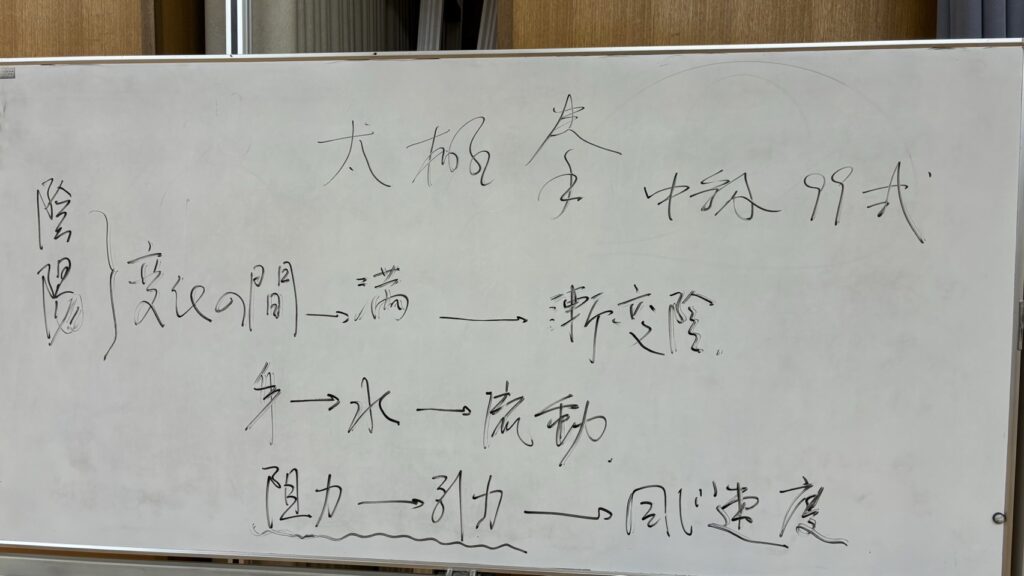 太極拳 中級 99式
陰
陽
変化の間→満→漸変陰.
身→水→流動.
阻力→引力→同じ速度